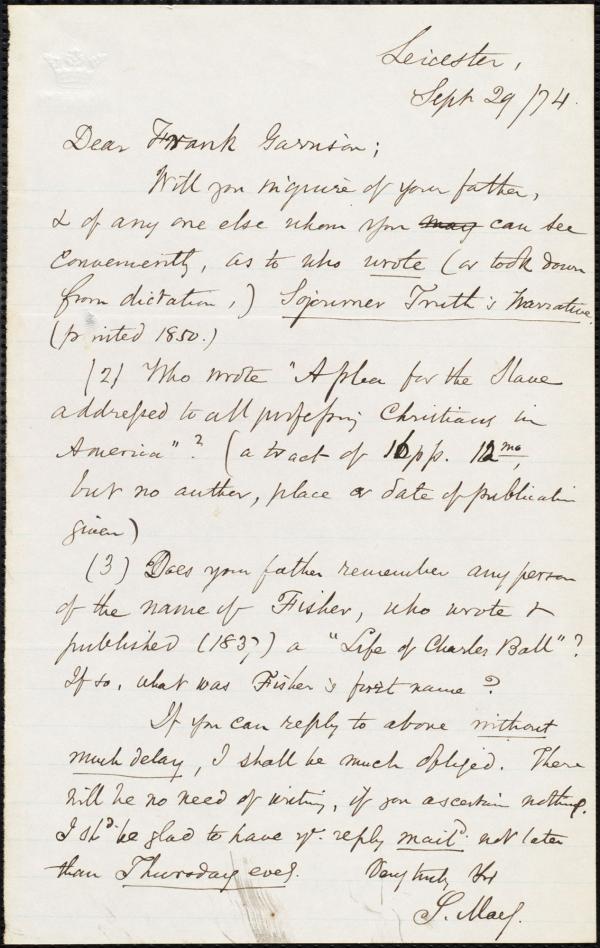 Leicester,
Sept 29/74.
Dear Frank Garrison;
Will you inquire of your father,
& of any one else whom you may can see
conveniently, as to who wrote (or took down
from dictation,) Sojourner Truth's Narrative.
(printed 1850.)
(2) Who wrote "A plea for the Slave
addressed to all professing Christians in
America"? (a tract of 16 pp. 12mo,
but no author, place or date of publication
given)
(3) Does your father remember any person
of the name of Fisher, who wrote &
published (1837) a "Life of Charles Ball"?
If so, what was Fisher's first name?
If you can reply to above without
much delay, I shall be much obliged. There
will be no need of writing, if you ascertain nothing.
I shd be glad to have yr. reply maild. not later
than Thursday eveg.
Very truly Yrs
S. May.